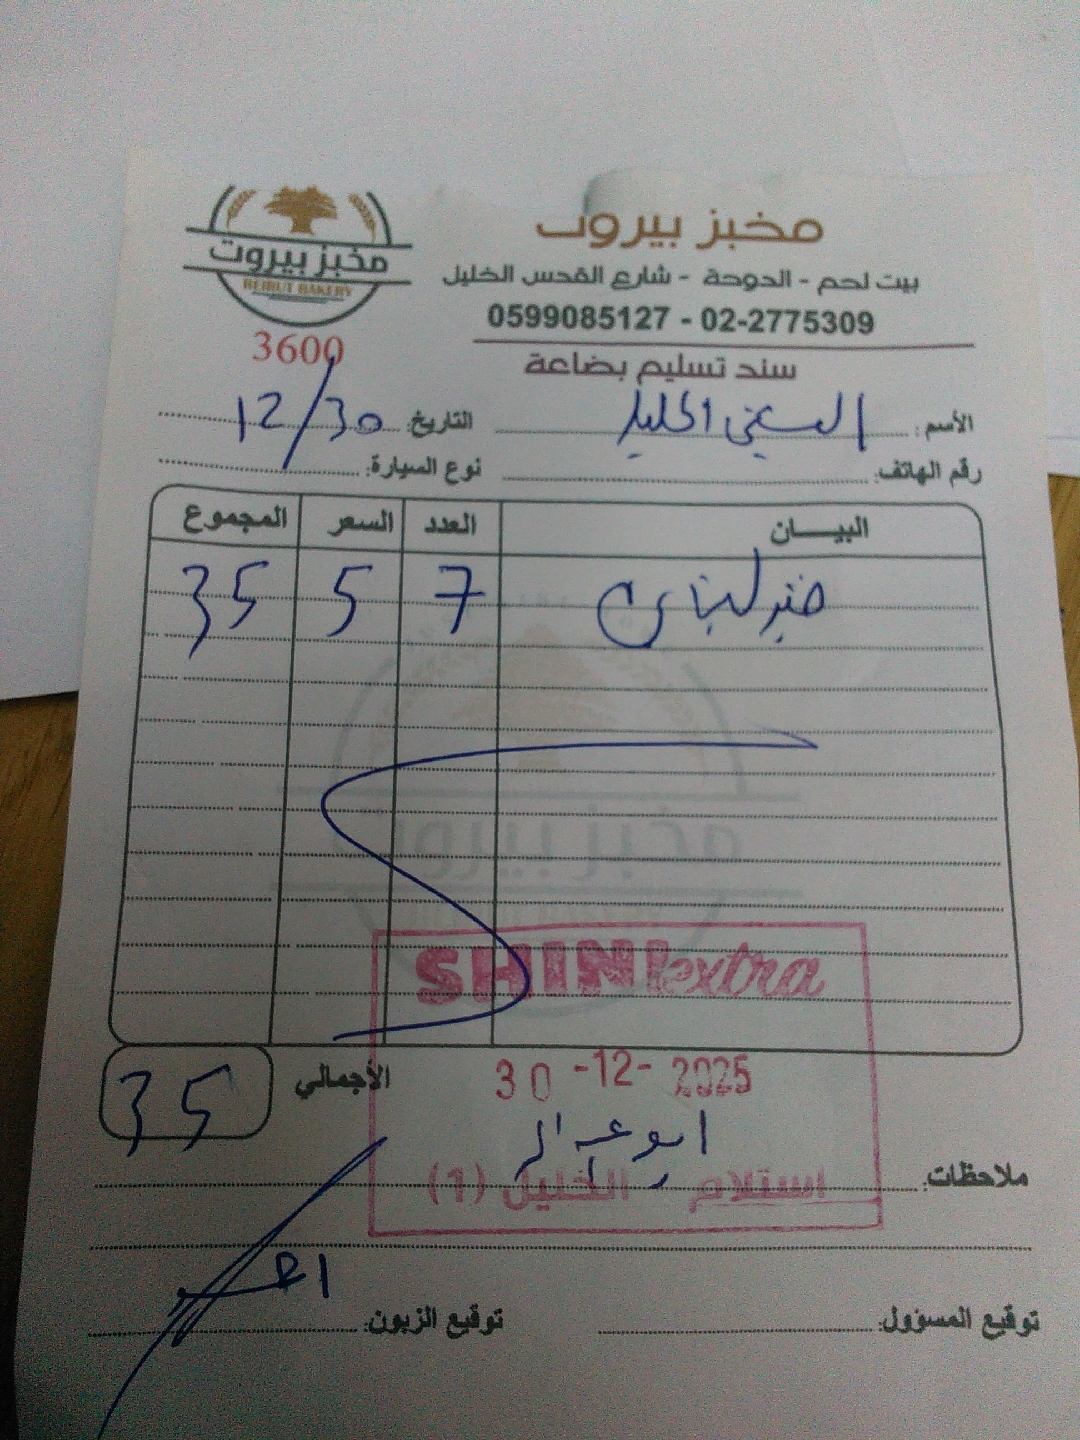 مخبز بيروت
مخبز بيروت
BEIRUT BAKERY
بيت لحم - الدوحة - شارع القدس الخليل
0599085127 - 02-2775309
3600
سند تسليم بضاعة
الأسم: الشيني الخليل
التاريخ: 12/30
رقم الهاتف:
نوع السيارة:
البيـــان العدد السعر المجموع
خبز لبناني 7 5 35
مخبز بيروت
SHINI extra
الأجمالي 35
30 -12- 2025
ابو
ملاحظات:
استلام الخليل (1)
توقيع المسؤول:
توقيع الزبون: